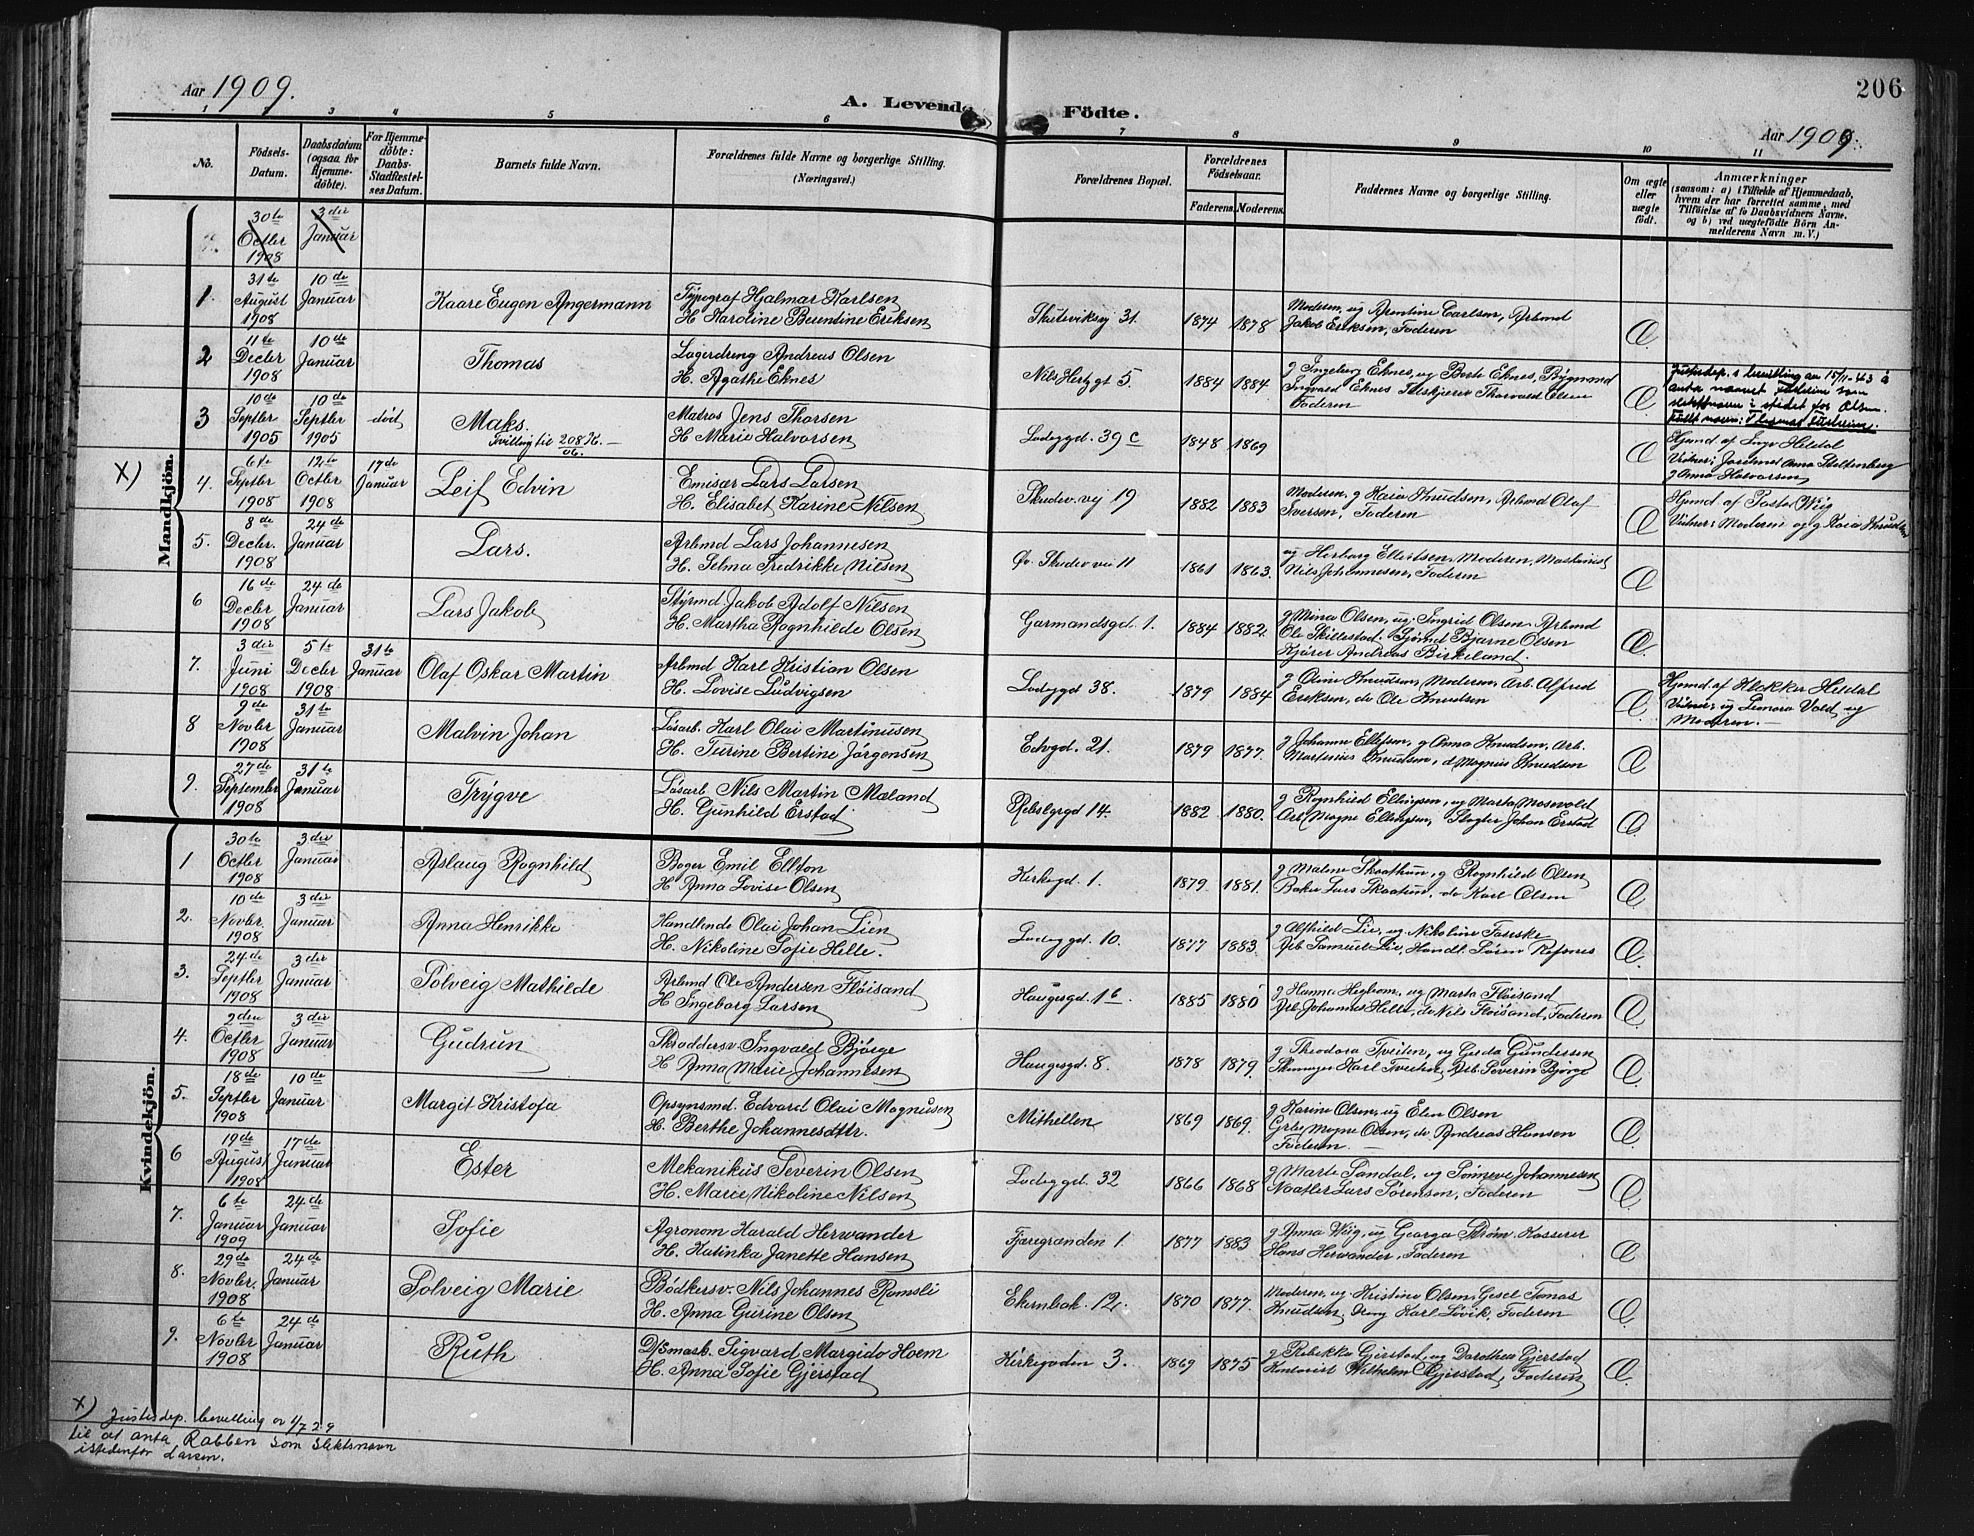 206
Aar 1909.
A. Levende Födte.
Aar 1909.
1 2 3 4 5 6 7 8 9 10 11
No.
Födsels-
Datum.
Daabsdatum
(ogsaa for
Hjemme-
döbte).
For Hjemme-
döbte:
Daabs-
Stadfæstel-
ses Datum.
Barnets fulde Navn.
Forældrenes fulde Navne og borgerlige Stilling.
(Næringsvei.)
Forældrenes Bopæl.
Forældrenes
Födselsaar.
Faderens. Moderens.
Faddernes Navne og borgerlige Stilling.
Om ægte
eller
uægte
födt.
Anmærkninger
(saasom: a) i Tilfælde af Hjemmedaab,
hvem der har forrettet samme, med
Tilföielse af to Daabsvidners Navne.
og b) ved uægtefödte Börn An-
melderens Navn m. V.)
Mandkjön.
30te Octbr 1908 3die Januar
1 31te August 1908 10de Januar Kaare Eugen Angermann
Typograf Hjalmar Karlsen
H. Karoline Berntine Eriksen
Skuteviksvj 31. 1874 1878
Moderen, ug Arentine Carlsen, Arbmd
Jakob Eriksen, Faderen
Æ
2 11te Decbr 1908 10de Januar Thomas
Lagerdreng Andreas Olsen
H. Agathe Eknes
Nils Hertzgt 5. 1884 1884
g Ingeborg Eknes, ug Borte Eknes, Bÿgmmd
Ingvald Eknes Thorvald Olsen
Faderen
Æ
Justisdep.s bevilling av 15/11-43 å
anta navnet som
slektsnavn i stedet for Olsen.
3 10de Septbr 1905 10de Septbr 1905 död Maks.
Tvilling til 208 K. 06. —
Matros Jens Thorsen
H Marie Halvorsen
Ladeggd. 39 c 1848 1869
Æ
Hjmd af Inga Heldal
Vidner: Jordmor Anna Stoltenberg
g Anna Halvorsen
X) 4. 6te Septbr 1908 12te Octbr 1908 17de Januar Leif Edvin
Emisær Lars Larsen
H. Elisabet Karine Nilsen
Skudev. vej 19 1882 1883
Moderen, g Kaia Knudsen, Arbmd Olaf
Iversen, Faderen
Æ
Hjmd af Pastor Wiig
Vidner: Moderen og g Kaia Knudsen
5. 8de Decbr. 1908 24de Januar Lars.
Arbmd Lars Johannesen
H. Selma Fredrikke Nilsen
Öv. Skudev vei 11 1861 1863.
ug Herborg Ellertsen, Moderen, Maskinist
Nils Johannesen, Faderen
Æ
6 16de Decbr 1908 24de Januar Lars Jakob
Styrmd Jakob Adolf Nilsen
H. Martha Ragnhilde Olsen
Garmandsgd. 1. 1884 1882.
g Mina Olsen, ug Ingrid Olsen, Arbmd
Ole Skillestad. Sjömd Bjarne Olsen
Kjörer Andreas Birkeland.
Æ
7. 3die Juni 1908 5te Decbr 1908 31te Januar Olaf Oskar Martin
Arbmd Karl Kristian Olsen
H. Lovise Ludvigsen
Ladeggd 38. 1879 1884
g Oline Knudsen, Moderen, Arb. Alfred
Eriksen, do Ole Knudsen
Æ
Hjmd af Heldal
Vidner: ug Leonora Vold ug
Moderen. —
8 9de Novbr 1908 31te Januar Malvin Johan
Lösarb. Karl Olai Martinusen
H. Turine Bertine Jörgensen
Edvgd. 21. 1879 1877.
g Johanne Ellefsen, g Anna Knudsen, Arb.
Martinius Knudsen, d Magnus Knudsen
Æ
9. 27de September 1908 31te Januar Trÿgve
Lösarb Nils Martin Mæland
H. Gunhild Erstad
Rebslgrgd 14. 1882 1880.
g Ragnhild Ellingsen, ug Marta Mosevold
Arb. Magne Ellingsen, Slagter Johan Erstad
Æ
Kvindekjön.
1 30te Octbr 1908 3die Januar Aslaug Ragnhild
Bager Emil Ellton
H Anna Lovise Olsen
Kirkegd. 1. 1879. 1881.
g Malene Skaathun, g Ragnhild Olsen
Baker Lars Skaatun, do Karl Olsen
Æ
2. 10de Novbr. 1908 3die Januar Anna Henrikke
Handlende Olai Johan Lien
H. Nikoline Sofie Helle.
Ladeggd. 10. 1877 1883
g Alfhild Lie, ug Nikoline Taskske
Arb Samuel Lie, Handl. Sören Refsnes
Æ
3. 24de Septbr 1908 3die Januar Solveig Mathilde
Arbmd Ole Andersen Flöisand
H Ingeborg Larsen
Haugesgd. 1 b. 1885 1880
g Hanna Hegbom, ug Marta Flöisand
Arb. Johannes Helle, do Nils Flöisand, Faderen
Æ
4. 2den Octbr 1908 3die Januar Gudrun
Skræddersv. Ingvald Bjørge
H Anna Marie Johannesen
Haugesgd. 8. 1878 1879.
g Theodora Tveiten, ug Gerda Gundersen
Skomager Karl Tveiten, Arb. Severin Bjørge
Æ
5. 18de Septbr 1908 10de Januar Margit Kristofa
Opsynsmd. Edvard Olai Magnusen
H. Berthe Johannesdttr.
Mithellen 1869 1869.
g Karine Olsen, ug Elen Olsen
Grbr. Magne Olsen, do Andreas Hansen
Faderen —
Æ
6 19de August 1908 17de Januar Ester
Mekanikus Severin Olsen
H. Marie Nikoline Nilsen
Ladeggd. 32 1866 1868
g Marte Sandal, ug Sønneve Johannesen
Lars Sörensen, Faderen
Æ
7. 6te Januar 1909 24de Januar Sofie
Agronom Harald Herwander
H. Katinka Janette Hansen
Fjæregrænden 1 1877 1883
g Anna Wiig, ug Georga Ström. Kasserer
Hans Herwander, Faderen
Æ
8. 29de Novbr. 1908 24de Januar Solveig Marie
Bödkersv. Nils Johannes Romsli
H. Anna Gurine Olsen
Ekernbak. 12. 1870 1877.
Moderen, ug Kristine Olsen, Gesel Tomas
Knudsen, Karl Lövik, Faderen
Æ
9. 6te Novbr 1908 24de Januar Ruth
D/Smask. Sigvard Margido Hoem
H. Anna Sofie Gjerstad
Kirkegaden 3. 1869 1875
g Rebekka Gjerstad, ug Dorothea Gjerstad
Kontorist Wilhelm Gjerstad, Faderen
Æ
X) Justisdep. bevilling av 1/7 29
til at anta Rabben som slektsnavn
istedenfor Larsen.